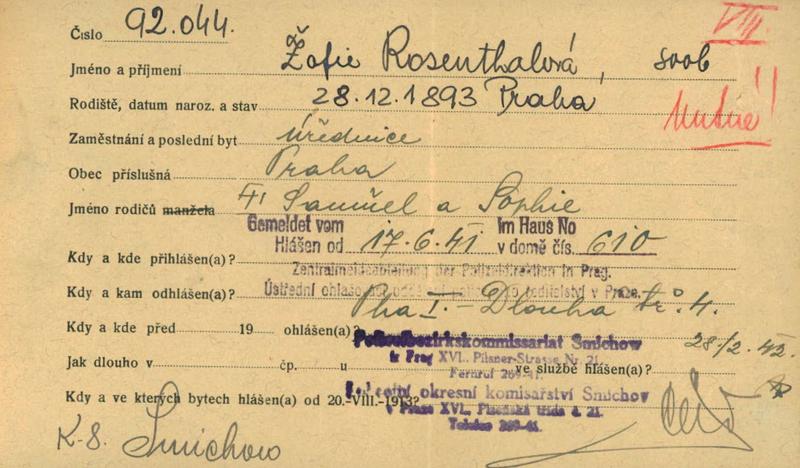 VIII.
Číslo 92.044.
Jméno a příjmení Žofie Rosenthalová, svob
Rodiště, datum naroz. a stav 28.12.1893 Praha
Nutné!
Zaměstnání a poslední byt úřednice
Obec příslušná Praha
Jméno rodičů manžela Samuel a Sophie
Gemeldet vom Im Haus No
Hlášen od 17.6.41 v domě čís. 610
Kdy a kde přihlášen(a)?
Zentralmeldeabteilung der Polizeidirektion in Prag.
Ústřední ohlašovací oddělení policejního ředitelství v Praze.
Kdy a kam odhlášen(a)? Pha I. - Dlouha tř. 4.
Kdy a kde před 19 ohlášen(a)? 28/2.42.
Polizeibezirkskommissariat Smichow
in Prag XVI., Pilsner-Strasse Nr. 21.
Fernruf 269-41.
Jak dlouho v čp. u ve službě hlášen(a)?
Policejní okresní komisařství Smíchov
v Praze XVI., Plzeňská třída č. 21.
Telefon 269-41.
Kdy a ve kterých bytech hlášen(a) od 20.-VIII.-1913?
K-S. Smichow